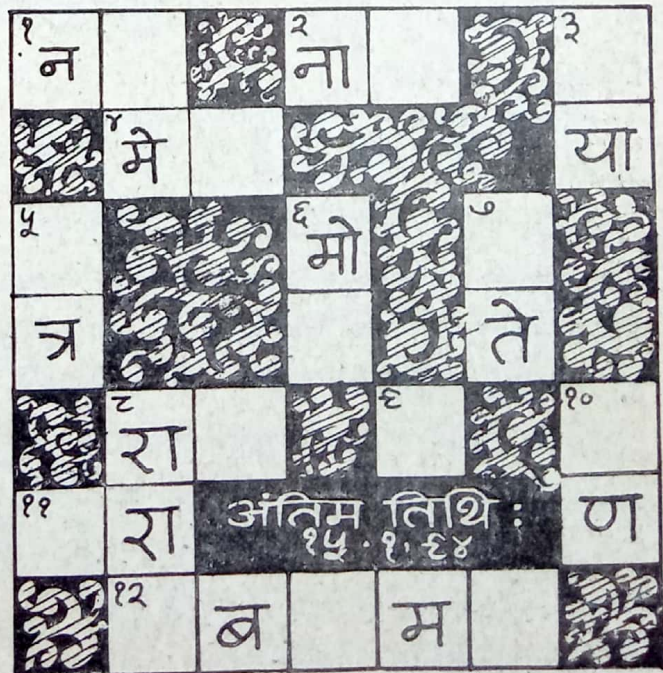 १ न २ ना ३
४ मे या
५ ६ मो ७
त्र ते
८ रा ९ १०
११ रा अंतिम तिथि : ण
१५.१.९४
१२ ब म